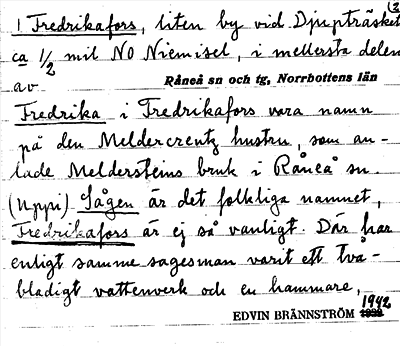 (2
! Fredrikafors, liten by vid Djupträsket
ca 1/2 mil NO Niemisel, i mellersta delen
av Råneå sn och tg, Norrbottens län
Fredrika i Fredrikafors vara namn
på den Meldercreutz hustru, som an-
lade Meldersteins bruk i Råneå sn.
(uppi) Sågen är det folkliga namnet,
Fredrikafors är ej så vanligt. Där har
enligt samme sagesman varit ett två-
bladigt vattenverk och en hammare,
EDVIN BRÄNNSTRÖM 1942